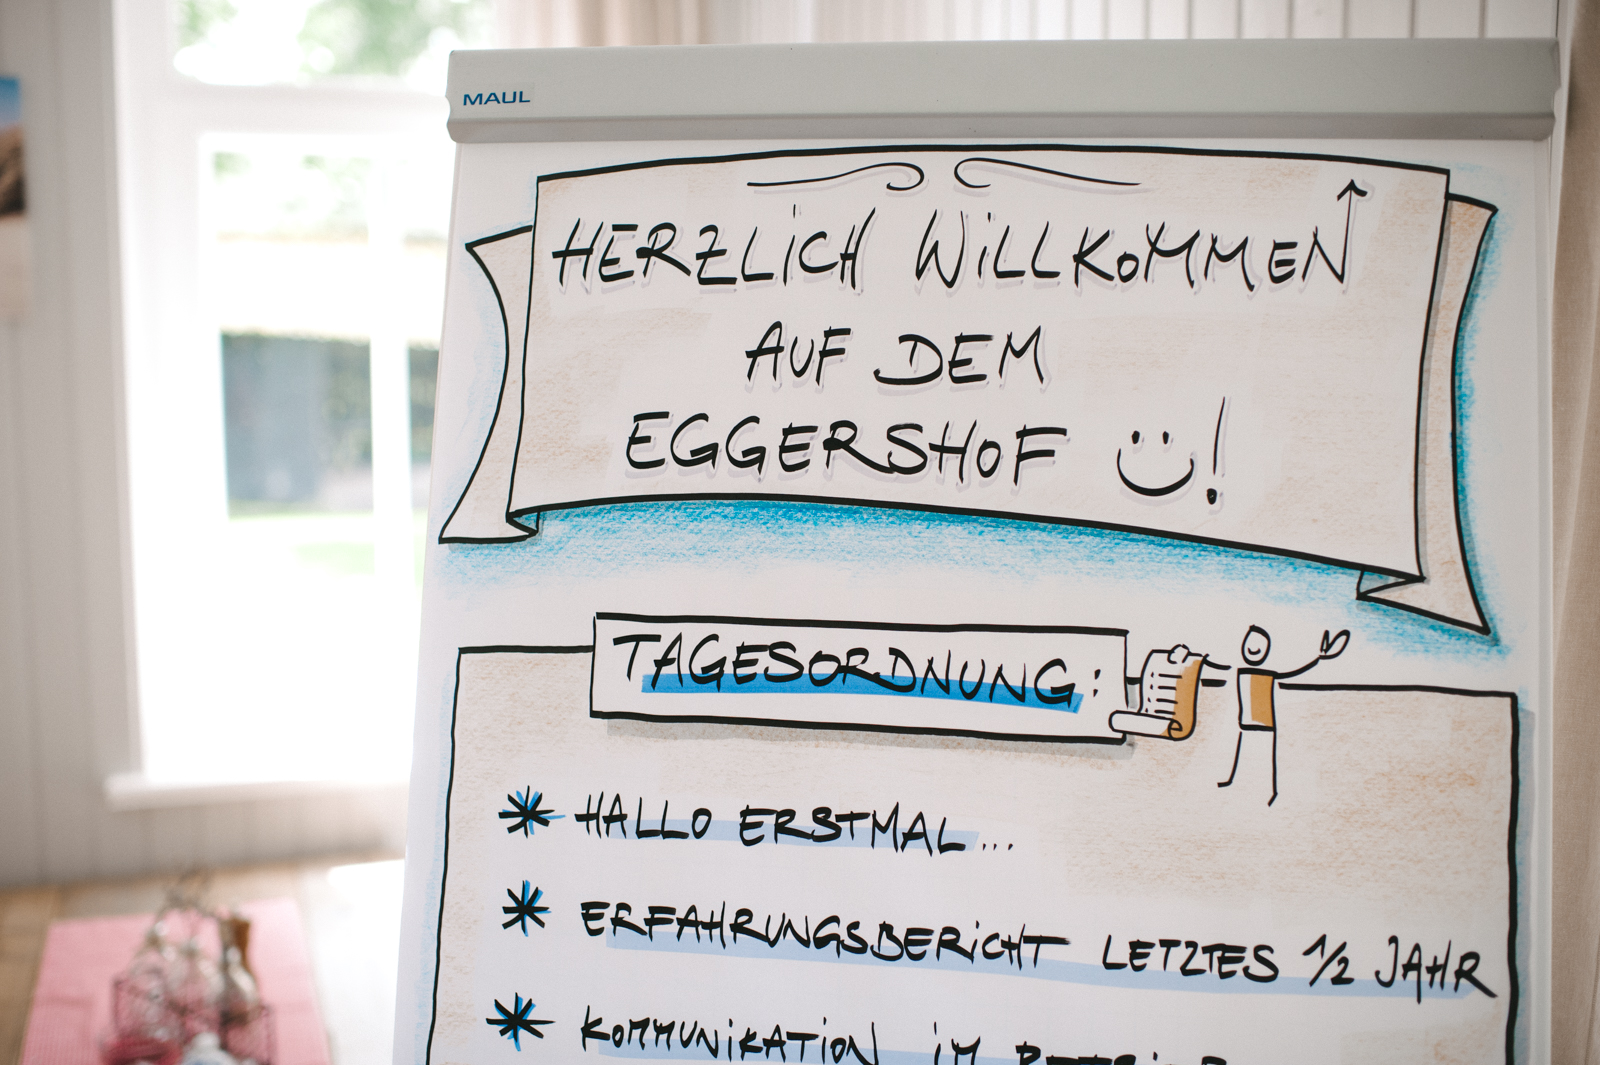 MAUL
HERZLICH WILLKOMMEN
AUF DEM
EGGERSHOF !
TAGESORDNUNG:
HALLO ERSTMAL...
ERFAHRUNGSBERICHT LETZTES 1/2 JAHR
KOMMUNIKATION IM